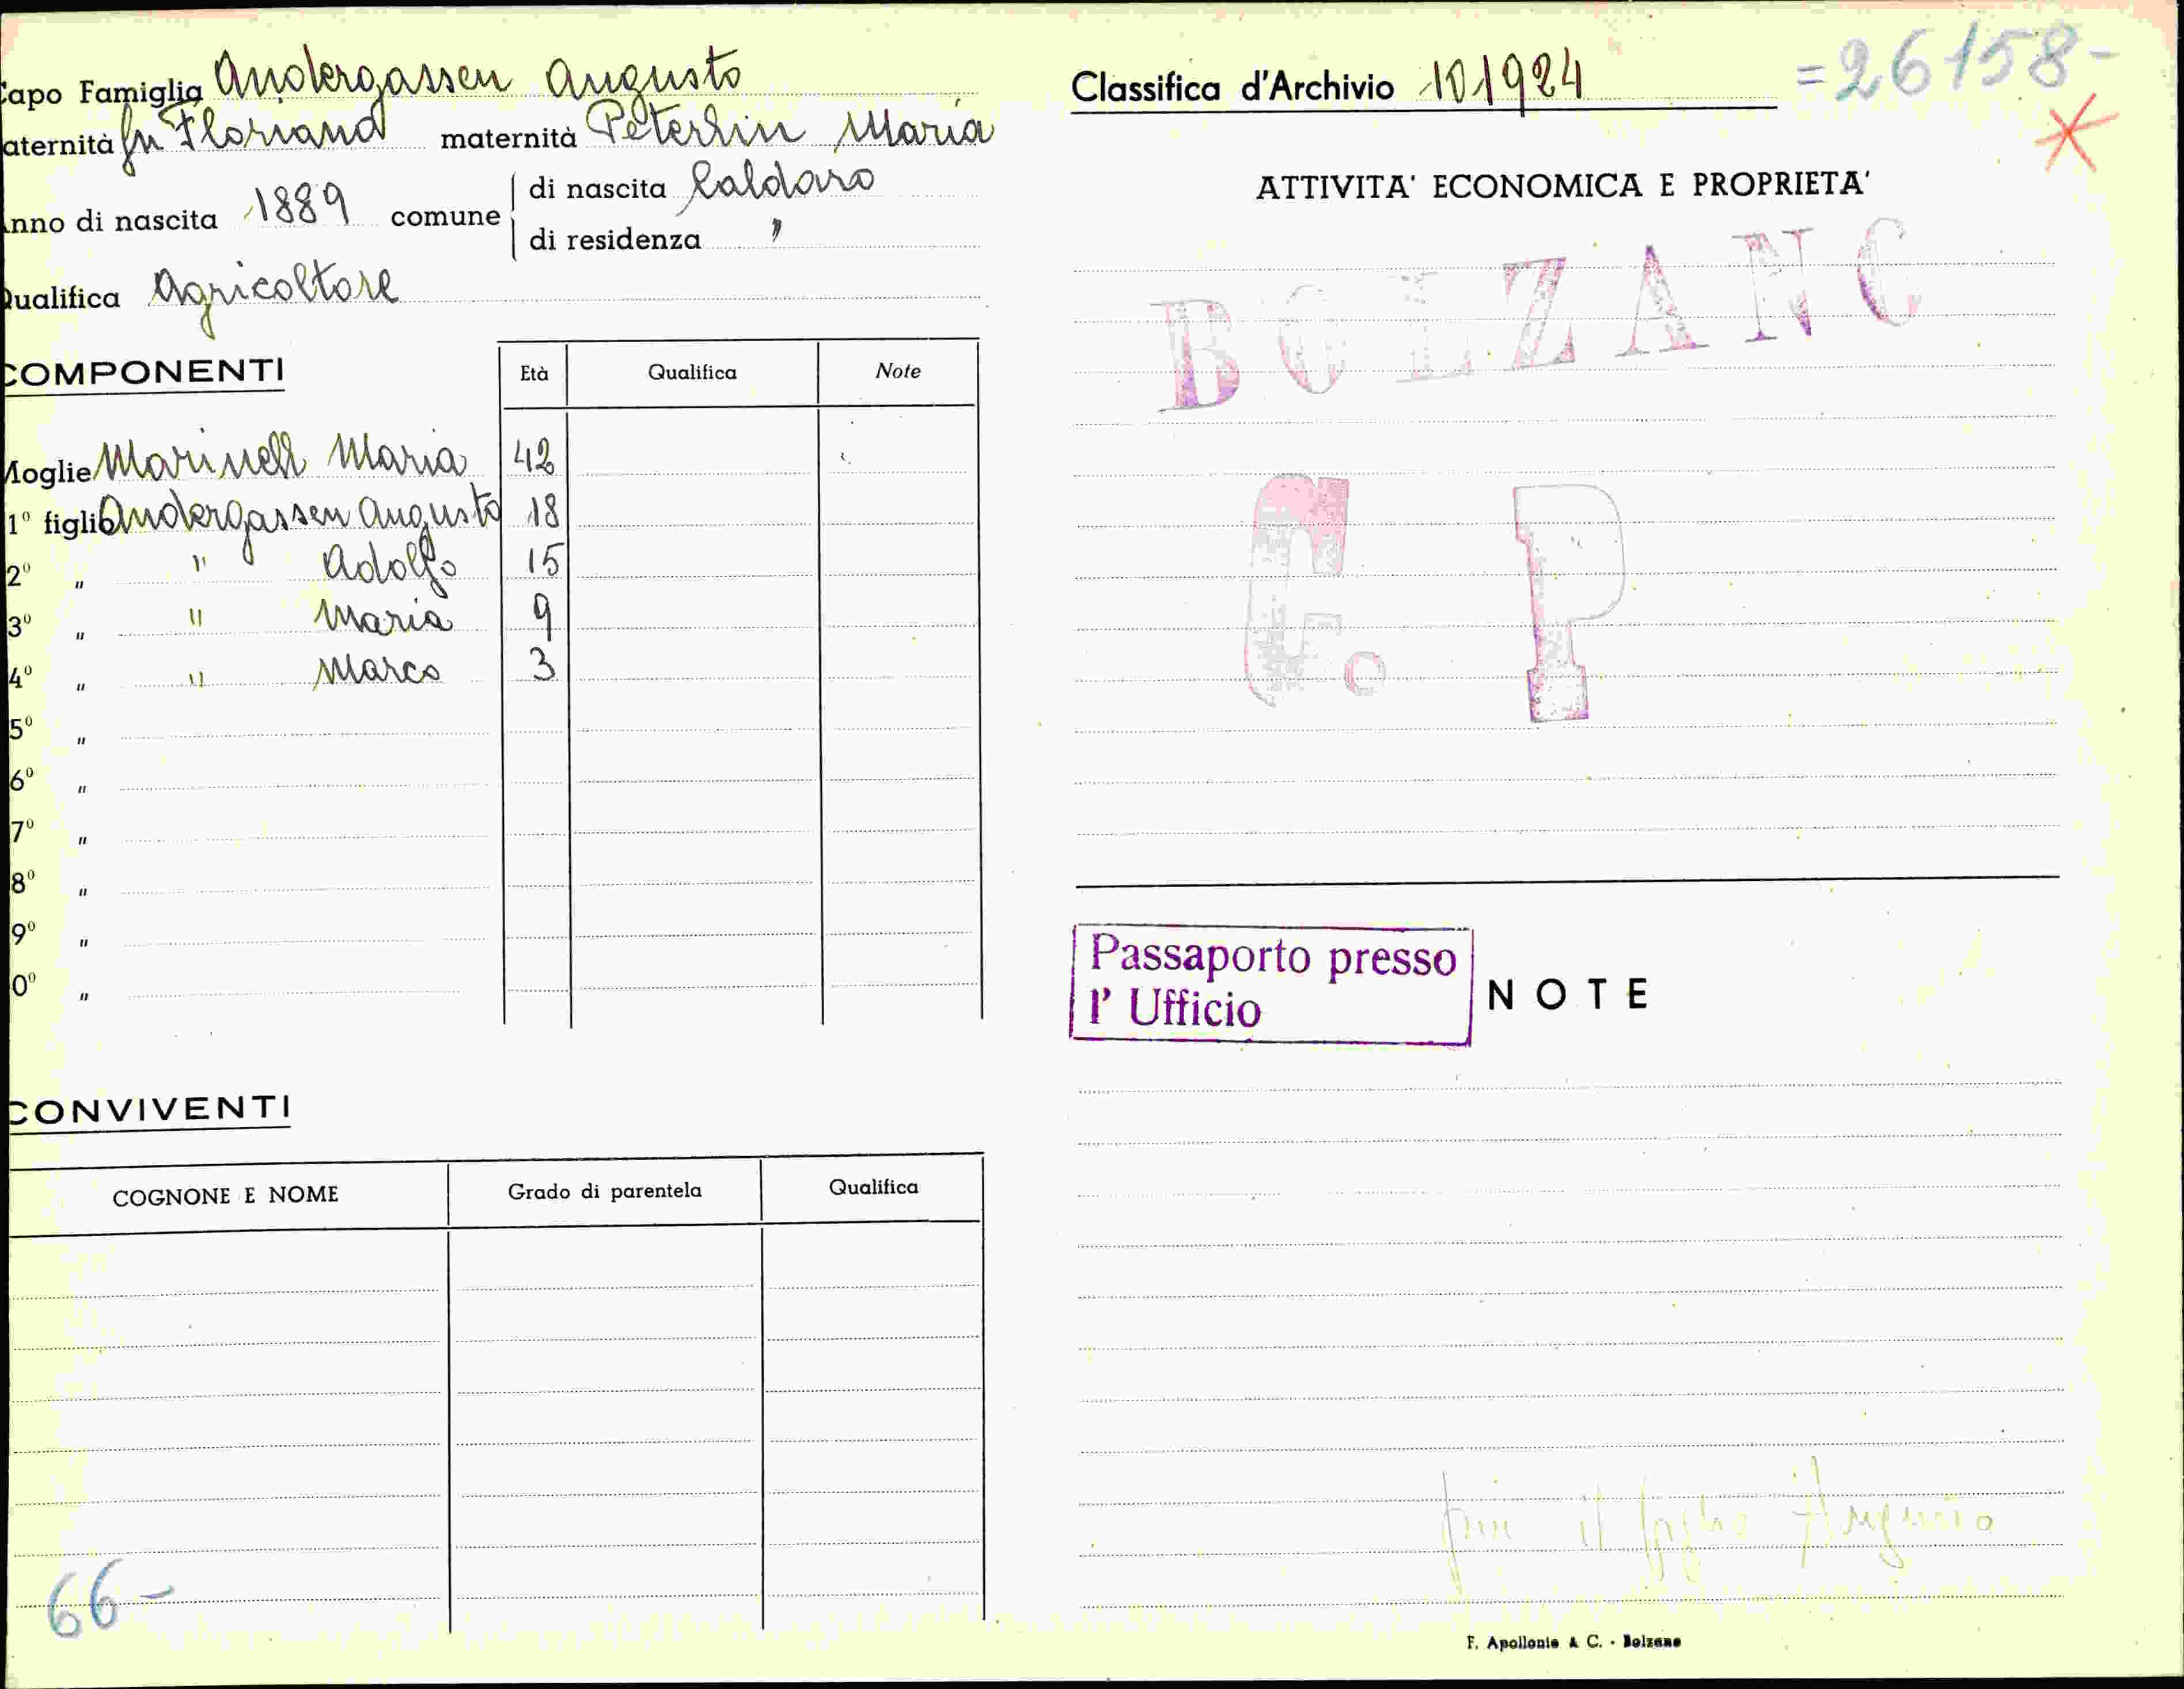 apo Famiglia Andergassen Augusto
aternità fu Floriano maternità Peterlin Maria
nno di nascita 1889 comune di nascita Caldaro
di residenza "
Qualifica Agricoltore
COMPONENTI
Età Qualifica Note
Moglie Marinell Maria 42
1º figlio Andergassen Augusto 18
2º " " Adolfo 15
3º " " Maria 9
4º " " Marco 3
5º "
6º "
7º "
8º "
9º "
0º "
CONVIVENTI
COGNONE E NOME Grado di parentela Qualifica
66-
Classifica d'Archivio 101924
=26158-
ATTIVITA' ECONOMICA E PROPRIETA'
BOLZANO
C. P
Passaporto presso
l' Ufficio
NOTE
il figlio Augusto
F. Apollonio & C. - Bolzano